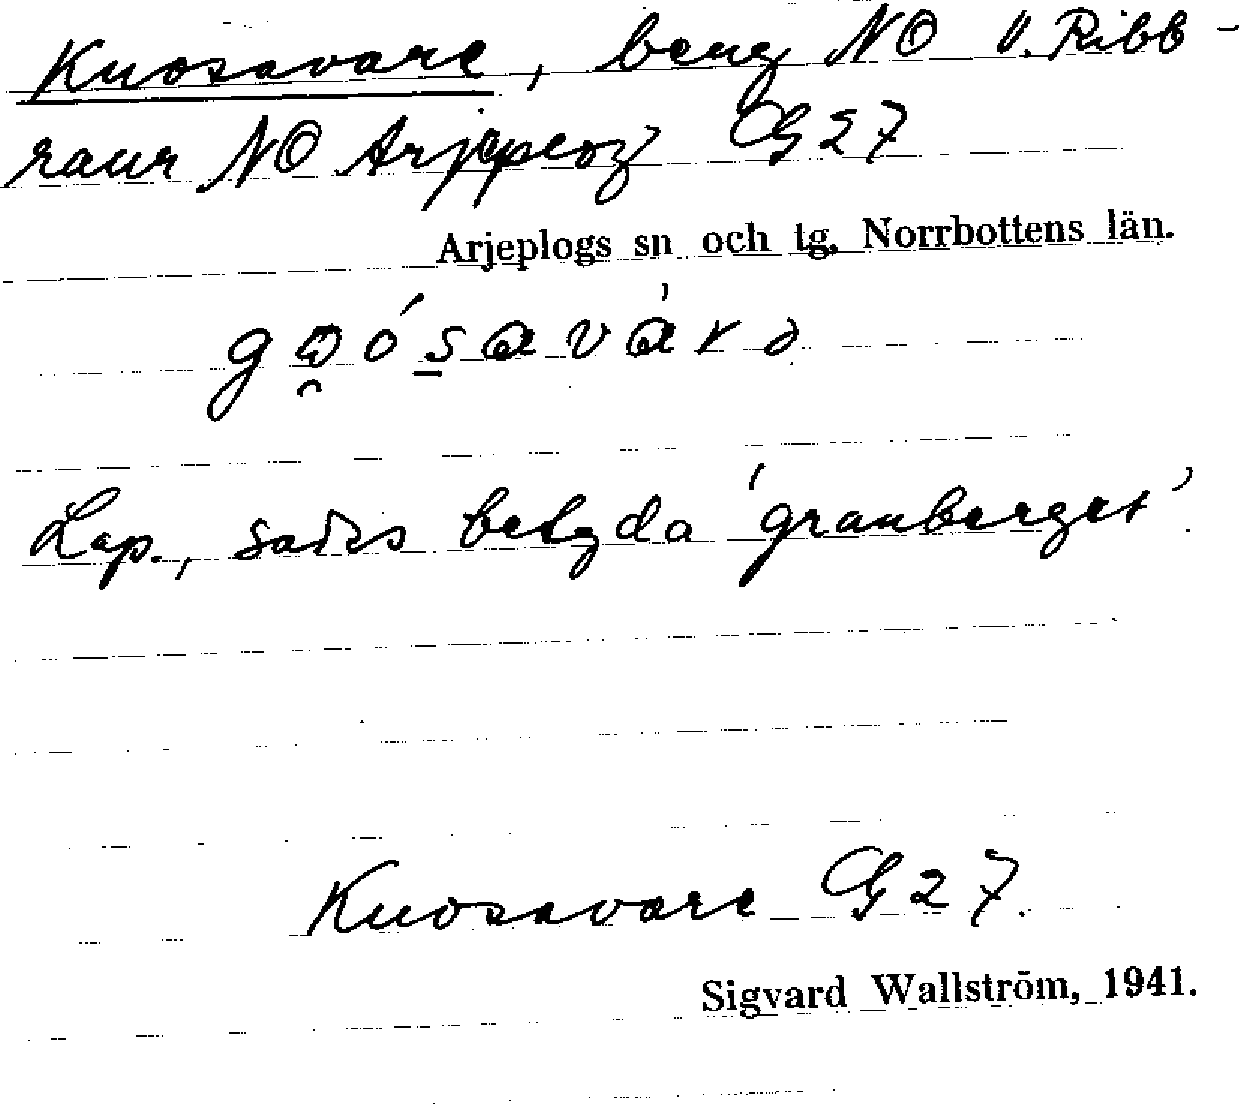 Kuosavare, berg NO v. Ribb-
raur NO Arjeplog G 27
Arjeplogs sn och tg, Norrbottens län.
Lap., sades betyda 'granberget'.
Kuosavare G 27.
Sigvard Wallström, 1941.